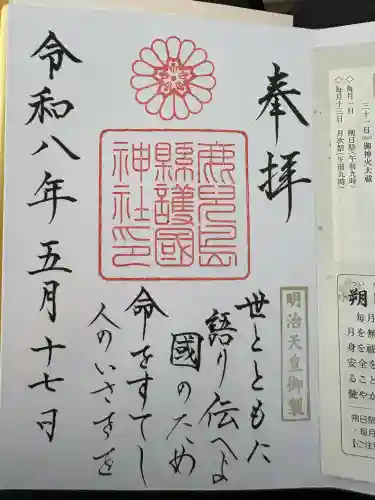 三十一日 御神火大祓
◇毎月一日 朔日祭(午前九時)
◇毎月十三日 月次祭(午前九時)
奉拝
鹿兒島
縣護國
神社印
明治天皇御製
世とともに
語り伝へよ
國のため
命をすてし
人のいさをを
令和八年五月十七日
朔日
毎月
月を無
身を祓
安全を
ること
健やか
朔日祭
・毎月
【ご注